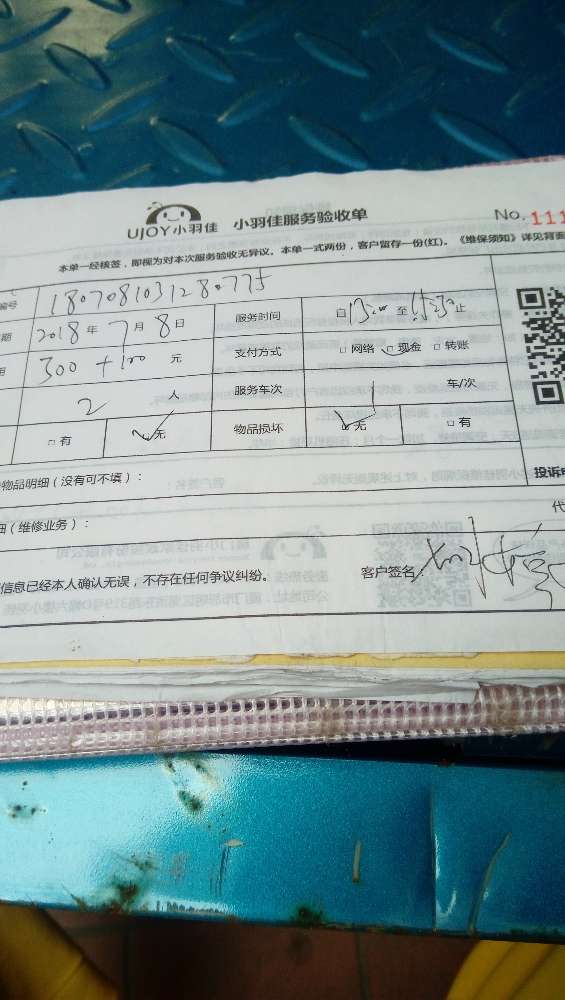 UJOY小羽佳 小羽佳服务验收单 No.111
本单一经核签，即视为对本次服务验收无异议。本单一式两份，客户留存一份(红)。《维保须知》详见背面
编号 1807081031280775
期 2018年7月8日 服务时间 自13:00至 止
用 300+100 元 支付方式 □网络 □现金 □转账
2 人 服务车次 1 车/次
□有 □无 物品损坏 □无 □有
物品明细（没有可不填）： 投诉
细（维修业务）： 代
信息已经本人确认无误，不存在任何争议纠纷。 客户签名：